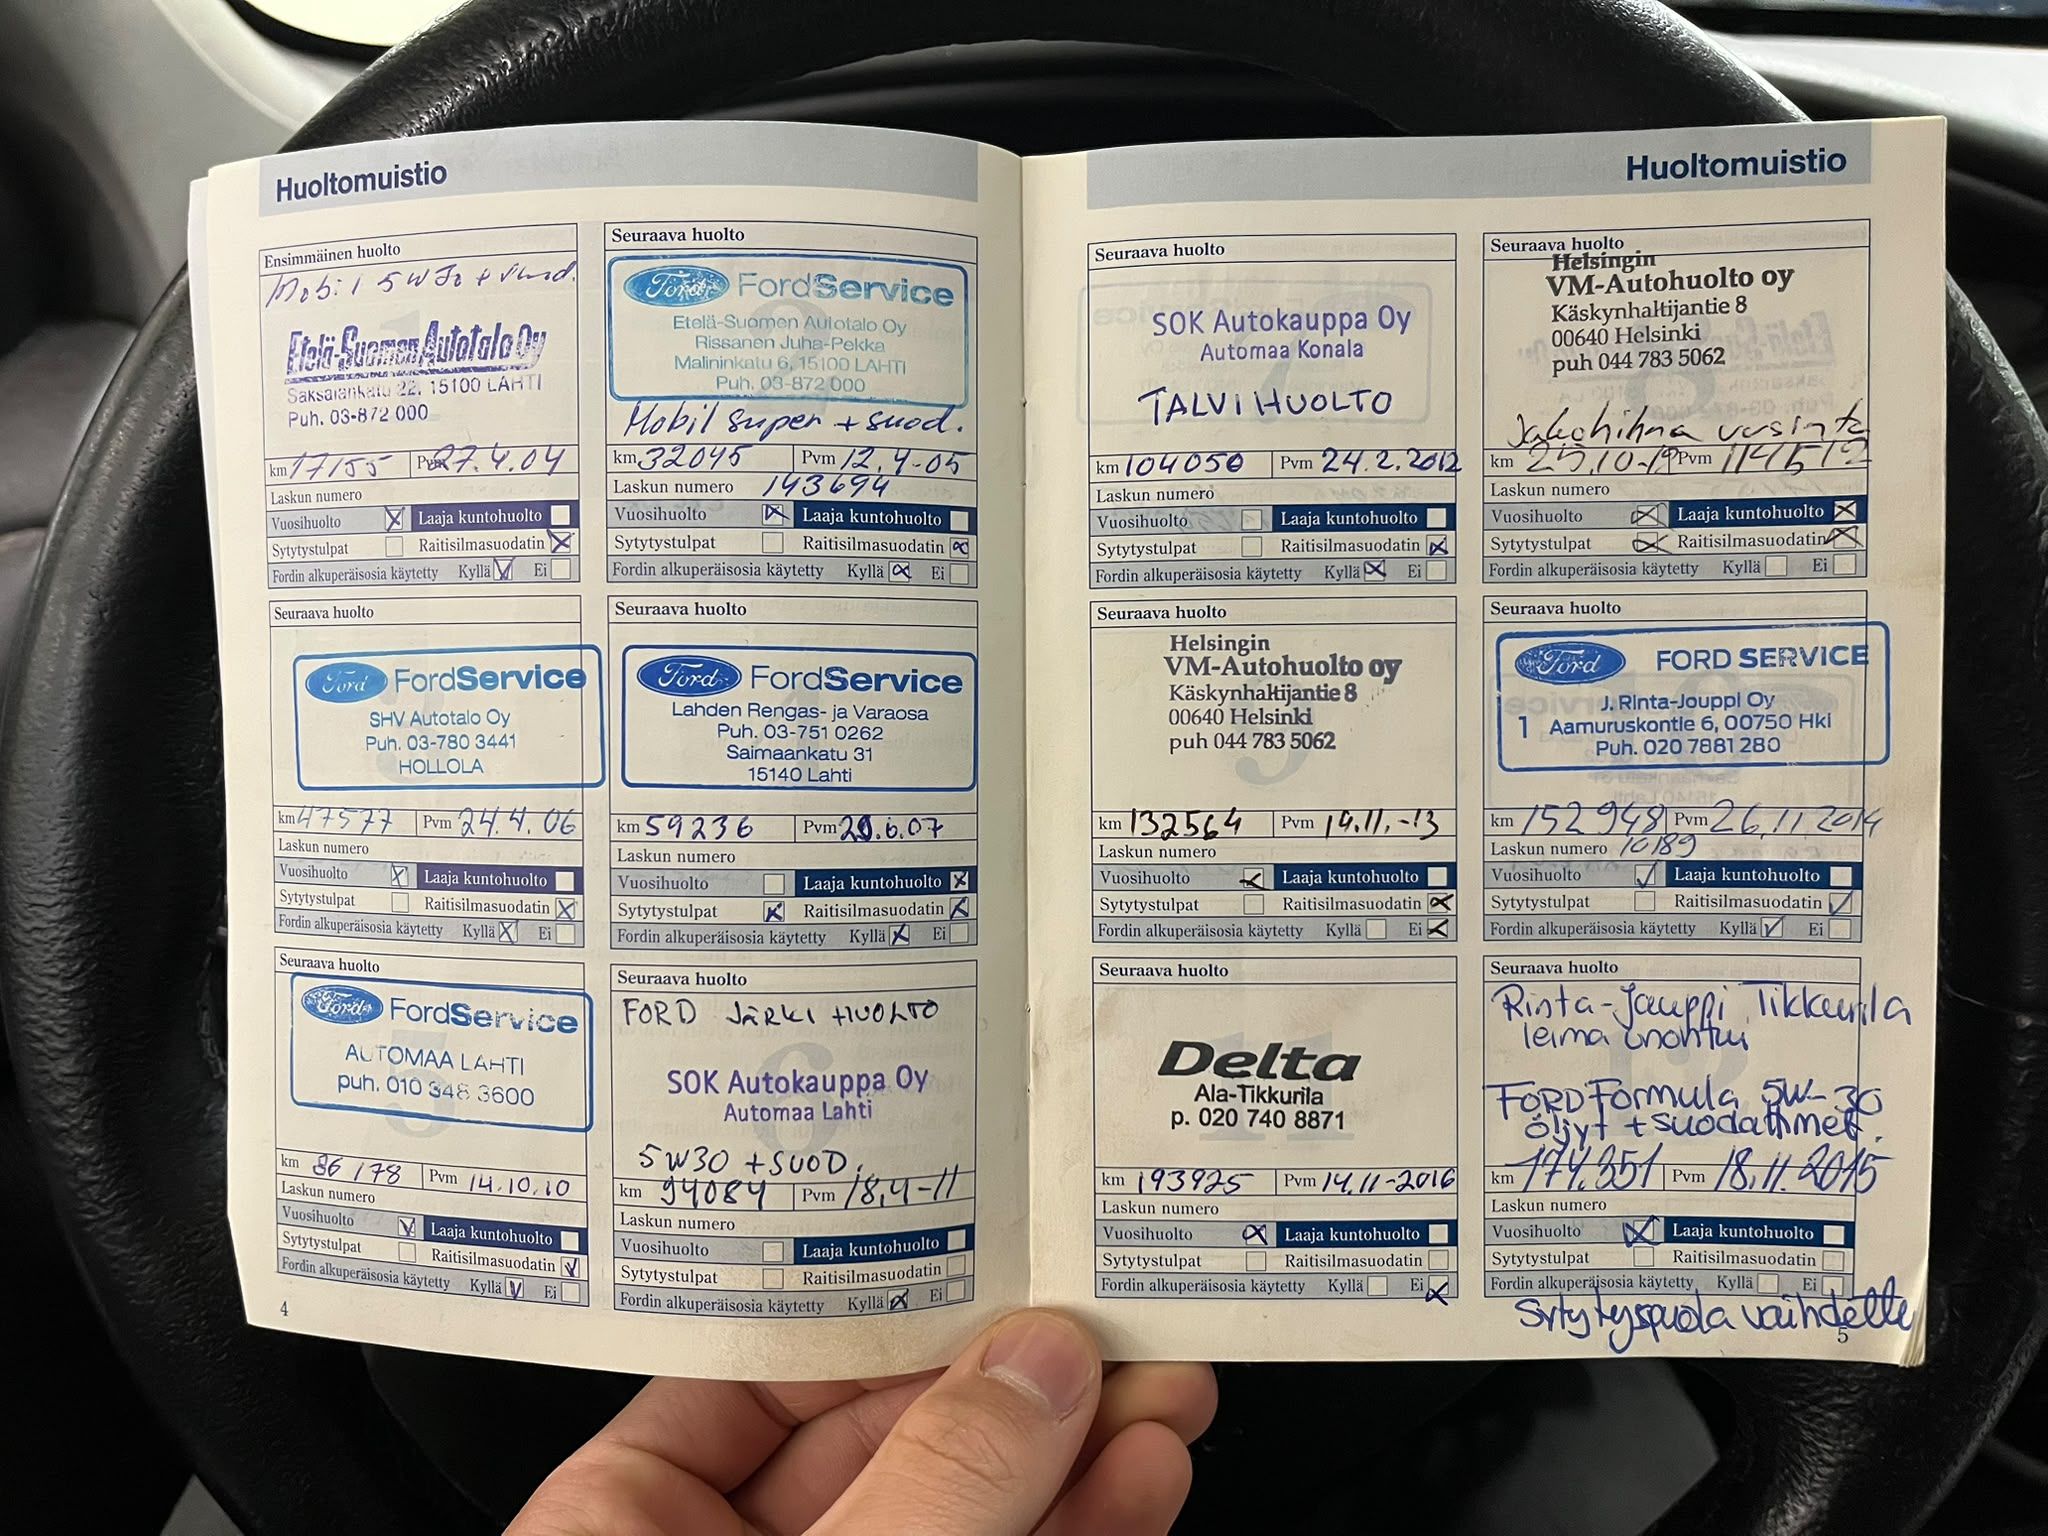 Huoltomuistio
Ensimmäinen huolto
Mobil 5W30 + suod.
Etelä-Suomen Autotalo Oy
Saksalankatu 22, 15100 LAHTI
Puh. 03-872 000
km 17155 Pvm 27.4.04
Laskun numero
Vuosihuolto Laaja kuntohuolto
Sytytystulpat Raitisilmasuodatin
Fordin alkuperäisosia käytetty Kyllä Ei
Seuraava huolto
Ford FordService
Etelä-Suomen Autotalo Oy
Rissanen Juha-Pekka
Malininkatu 6, 15100 LAHTI
Puh. 03-872 000
Mobil super + suod.
km 32045 Pvm 12.4.05
Laskun numero 143694
Vuosihuolto Laaja kuntohuolto
Sytytystulpat Raitisilmasuodatin
Fordin alkuperäisosia käytetty Kyllä Ei
Seuraava huolto
Ford FordService
SHV Autotalo Oy
Puh. 03-780 3441
HOLLOLA
km 47577 Pvm 24.4.06
Laskun numero
Vuosihuolto Laaja kuntohuolto
Sytytystulpat Raitisilmasuodatin
Fordin alkuperäisosia käytetty Kyllä Ei
Seuraava huolto
Ford FordService
Lahden Rengas- ja Varaosa
Puh. 03-751 0262
Saimaankatu 31
15140 Lahti
km 59236 Pvm .6.07
Laskun numero
Vuosihuolto Laaja kuntohuolto
Sytytystulpat Raitisilmasuodatin
Fordin alkuperäisosia käytetty Kyllä Ei
Seuraava huolto
Ford FordService
AUTOMAA LAHTI
puh. 010 348 3600
km 86178 Pvm 14.10.10
Laskun numero
Vuosihuolto Laaja kuntohuolto
Sytytystulpat Raitisilmasuodatin
Fordin alkuperäisosia käytetty Kyllä Ei
4
Seuraava huolto
FORD JÄRKIHUOLTO
SOK Autokauppa Oy
Automaa Lahti
5W30 + SUOD.
km 94084 Pvm 18.4-11
Laskun numero
Vuosihuolto Laaja kuntohuolto
Sytytystulpat Raitisilmasuodatin
Fordin alkuperäisosia käytetty Kyllä Ei
Huoltomuistio
Seuraava huolto
SOK Autokauppa Oy
Automaa Konala
TALVIHUOLTO
km 104050 Pvm 24.2.2012
Laskun numero
Vuosihuolto Laaja kuntohuolto
Sytytystulpat Raitisilmasuodatin
Fordin alkuperäisosia käytetty Kyllä Ei
Seuraava huolto
Helsingin
VM-Autohuolto oy
Käskynhaltijantie 8
00640 Helsinki
puh 044 783 5062
Jakohihna uusinta
km 25.10-12 Pvm 114512
Laskun numero
Vuosihuolto Laaja kuntohuolto
Sytytystulpat Raitisilmasuodatin
Fordin alkuperäisosia käytetty Kyllä Ei
Seuraava huolto
Helsingin
VM-Autohuolto oy
Käskynhaltijantie 8
00640 Helsinki
puh 044 783 5062
km 132564 Pvm 14.11.-13
Laskun numero
Vuosihuolto Laaja kuntohuolto
Sytytystulpat Raitisilmasuodatin
Fordin alkuperäisosia käytetty Kyllä Ei
Seuraava huolto
Ford FORD SERVICE
J. Rinta-Jouppi Oy
1 Aamuruskontie 6, 00750 Hki
Puh. 020 7881 280
km 152948 Pvm 26.11.2014
Laskun numero 10189
Vuosihuolto Laaja kuntohuolto
Sytytystulpat Raitisilmasuodatin
Fordin alkuperäisosia käytetty Kyllä Ei
Seuraava huolto
Delta
Ala-Tikkurila
p. 020 740 8871
km 193925 Pvm 14.11-2016
Laskun numero
Vuosihuolto Laaja kuntohuolto
Sytytystulpat Raitisilmasuodatin
Fordin alkuperäisosia käytetty Kyllä Ei
Seuraava huolto
Rinta-Jouppi Tikkurila
leima unohtui
FORD Formula 5W-30
öljyt + suodattimet.
km 174.351 Pvm 18.11.2015
Laskun numero
Vuosihuolto Laaja kuntohuolto
Sytytystulpat Raitisilmasuodatin
Fordin alkuperäisosia käytetty Kyllä Ei
Sytytyspuola vaihdettu
5